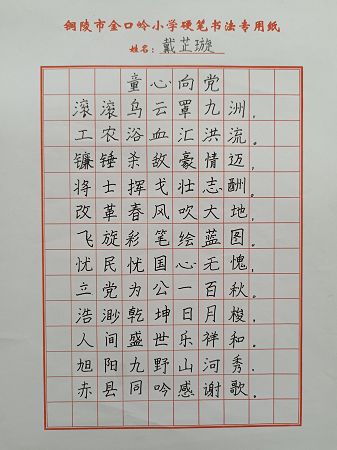 铜陵市金口岭小学硬笔书法专用纸
姓名：戴芷璇
童心向党
滚滚乌云罩九洲，
工农浴血汇洪流。
镰锤杀敌豪情迈，
将士挥戈壮志酬。
改革春风吹大地，
飞旋彩笔绘蓝图。
忧民忧国心无愧，
立党为公一百秋。
浩渺乾坤日月梭，
人间盛世乐祥和。
旭阳九野山河秀，
赤县同吟感谢歌。